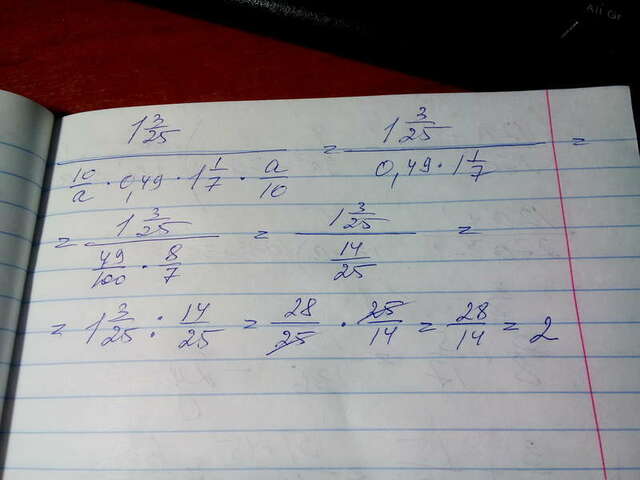 Alt Gr
1 3/25 / (10/a · 0,49 · 1 1/7 · a/10) = 1 3/25 / (0,49 · 1 1/7) =
= 1 3/25 / (49/100 · 8/7) = 1 3/25 / (14/25) =
= 1 3/25 : 14/25 = 28/25 · 25/14 = 28/14 = 2